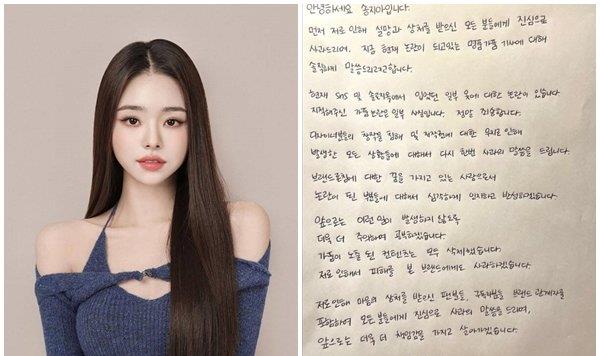 안녕하세요 송지아입니다.
먼저 저로 인해 실망과 상처를 받으신 모든 분들에게 진심으로
사과드리며, 지금 현재 논란이 되고있는 명품가품 기사에 대해
솔직하게 말씀드리려고합니다.
현재 SNS 및 솔로지옥에서 입었던 일부 옷에 대한 논란이 있습니다.
지적해주신 가품논란은 일부 사실입니다. 정말 죄송합니다.
디자이너분들의 창작물 침해 및 저작권에 대한 무지로 인해
발생한 모든 상황들에 대해서 다시 한번 사과의 말씀을 드립니다.
브랜드론칭에 대한 꿈을 가지고 있는 사람으로서
논란이 된 부분들에 대해서 심각하게 인지하고 반성하겠습니다.
앞으로는 이런 일이 발생하지 않도록
더욱 더 주의하며 공부하겠습니다.
가품이 노출 된 컨텐츠는 모두 삭제했습니다.
저로 인해서 피해를 본 브랜드에게도 사과하겠습니다.
저로인해 마음의 상처를 받으신 팬분들, 구독자분들 브랜드 관계자를
포함하여 모든 분들에게 진심으로 사과의 말씀을 드리며,
앞으로는 더욱 더 책임감을 가지고 살아가겠습니다.